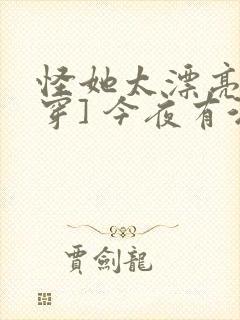 怪她太漂亮
穿]今夜有
贾剑龍